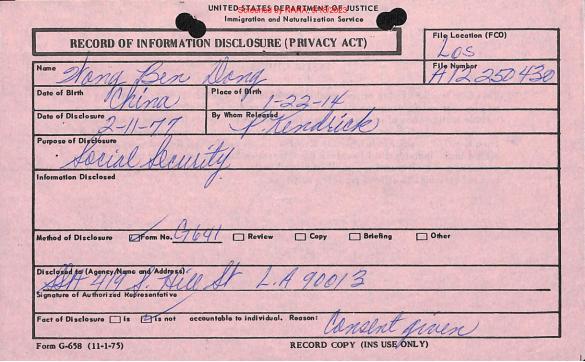 UNITED STATES DEPARTMENT OF JUSTICE
Screened by NARA, 9/18/2023
Immigration and Naturalization Service
RECORD OF INFORMATION DISCLOSURE (PRIVACY ACT)
File Location (FCO)
LOS
Name Wong Ben Dong
File Number
A12 250 430
Date of Birth China
Place of Birth 1-22-14
Date of Disclosure 2-11-77
By Whom Released P. Kendrick
Purpose of Disclosure
Social Security
Information Disclosed
Method of Disclosure Form No. G641 Review Copy Briefing Other
Disclosed to (Agency/Name and Address)
SSA 419 S. Hill St L.A 90013
Signature of Authorized Representative
Fact of Disclosure is is not accountable to individual. Reason: Consent given
Form G-658 (11-1-75) RECORD COPY (INS USE ONLY)